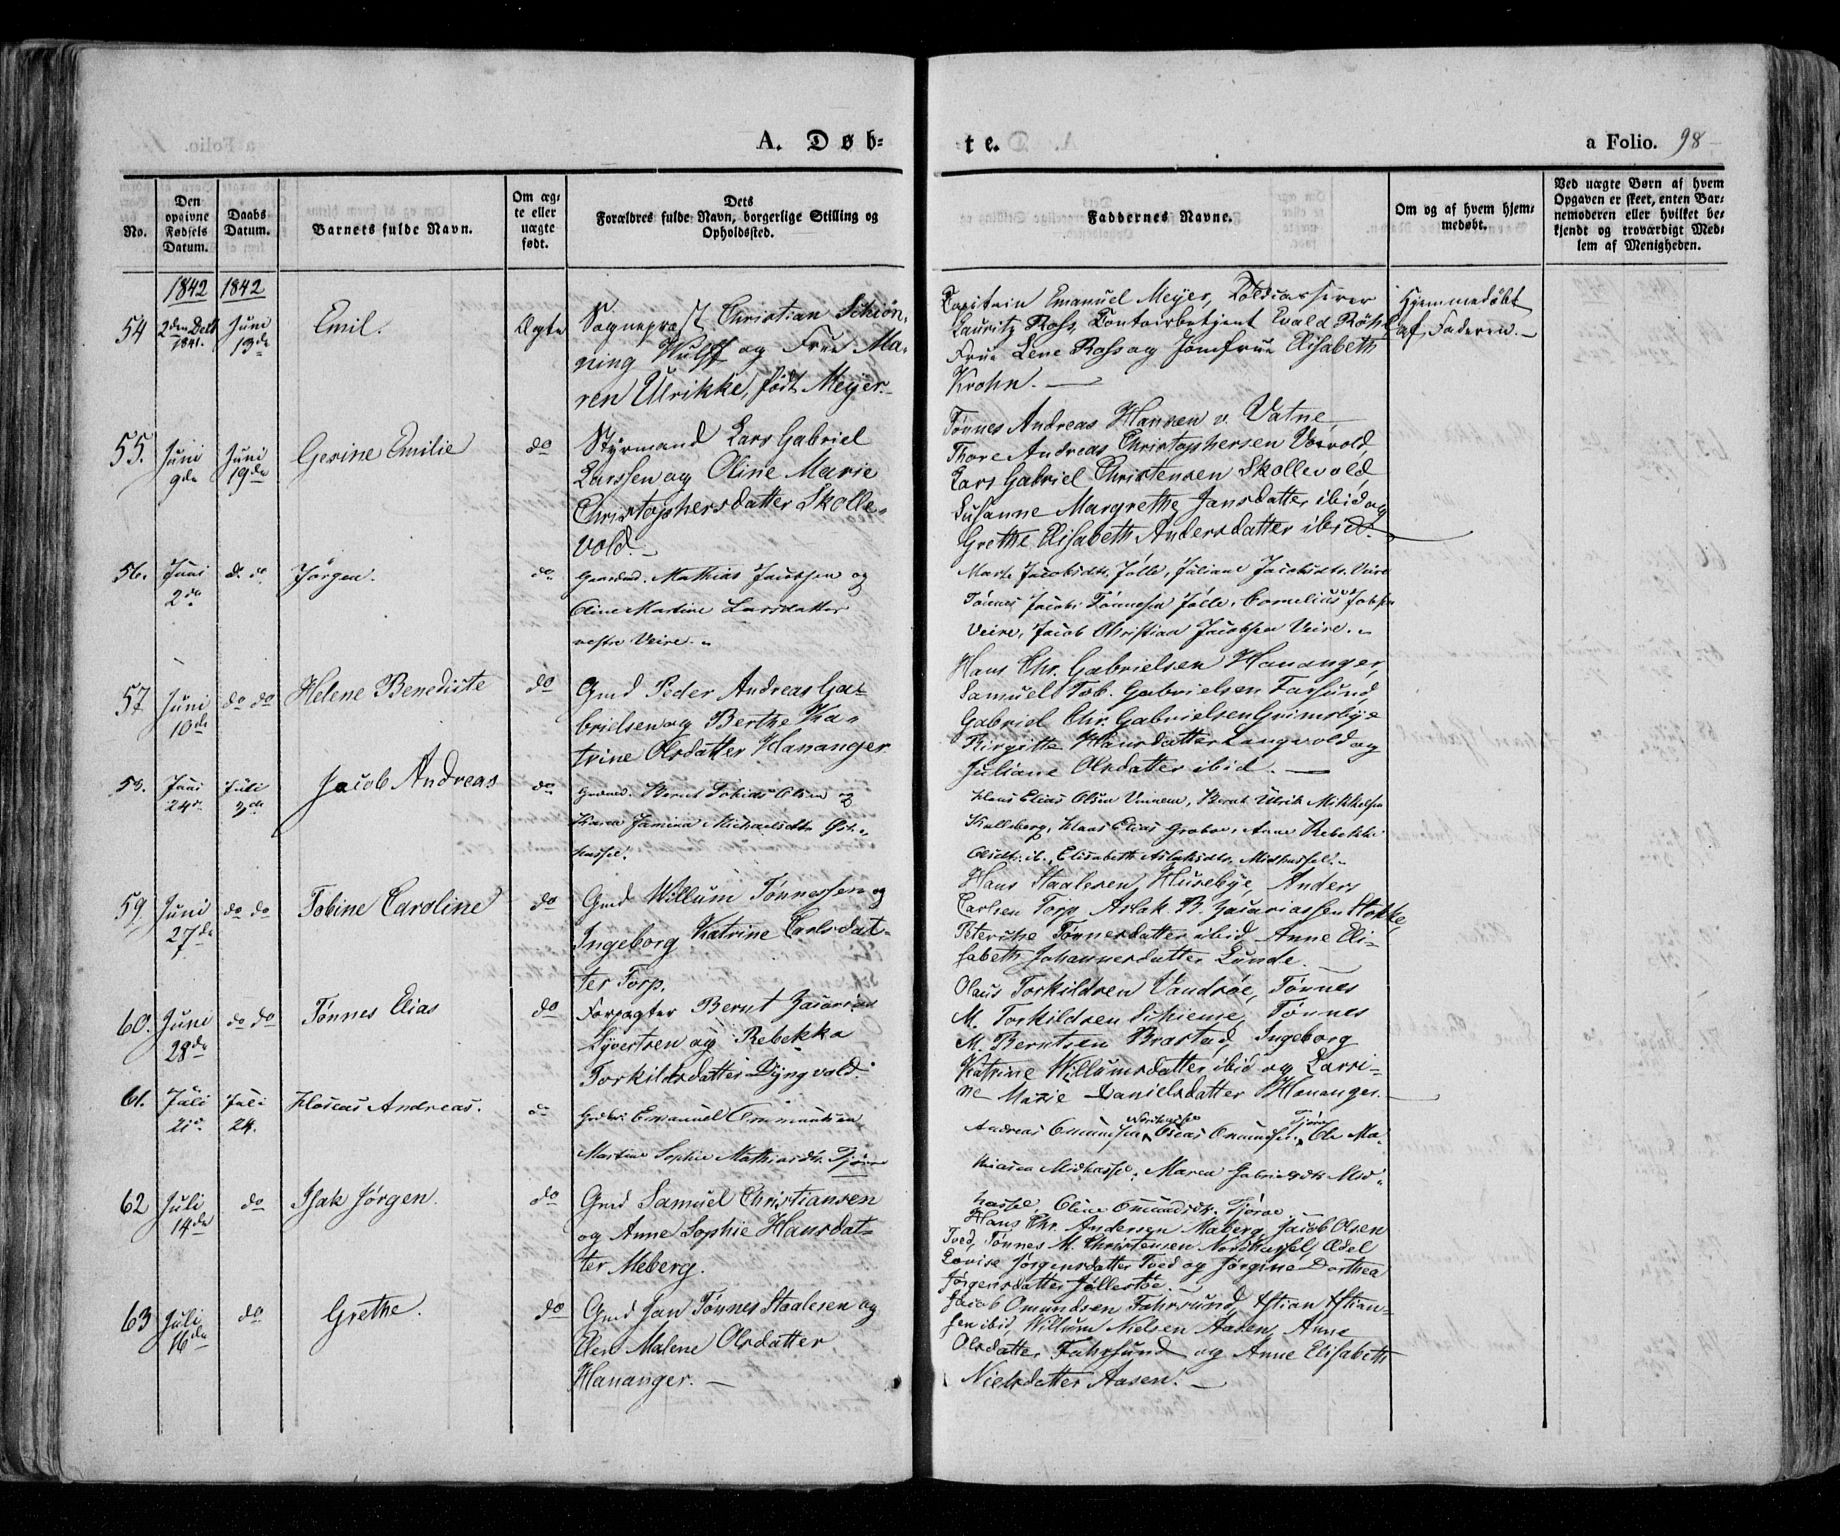 A. Døb-
te.
a Folio. 98
No.
Den opgivne Fødsels Datum.
Daabs Datum.
Barnets fulde Navn.
Om ægte eller uægte født.
Dets Forældres fulde Navn, borgerlige Stilling og Opholdssted.
Faddernes Navne.
Om og af hvem hjemmedøbt.
Ved uægte Børn af hvem Opgaven er skeet, enten Barnemoderen eller hvilket bekjendt og troværdigt Medlem af Menigheden.
1842 1842
54 2den Decb 1841. Juni 13de Emil. Ægte
Sognepræst Christian Schiøn-
ning Wulff og Frue Ma-
ren Ulrikke, født Meyer.
Capitain Emanuel Meyer, Toldcasserer
Lauritz Ross, Contoirbetjent Evald Røhl
Frue Lene Ross og Jomfrue Elisabeth
Krohn. —
Hjemmedøbt
af Faderen. —
55. Juni 9de Juni 19de Gerine Emilie do
Styrmand Lars Gabriel
Larssen og Oline Marie
Christophersdatter Skolle-
vold. —
Tønnes Andreas Hansen v. Vatne
Thore Andreas Christophersen
Lars Gabriel Christensen Skollevold,
Susanne Margrethe Jansdatter ibid og
Grethe Elisabeth Andersdatter ibid.
56. Juni 2de d. do Jørgen. do.
Gaardmd. Mathias Jacobsen og
Oline Martine Larsdatter
vestre Veire.
Marte Jacobsdtr. Jølle, Juliane Jacobsdtr. Veire
Tønnes Jacob Tønnesen Jølle, Cornelius Jobsen
Veire, Jacob Christian Jacobsen Veire.
57 Juni 10de do do Helene Benedicte do
Gmd Peder Andreas Ga-
brielsen og Berthe Ka-
trine Olsdatter Hananger
Hans Chr. Gabrielsen Hananger,
Samuel Tob. Gabrielsen Farsund
Gabriel Chr. Gabrielsen Grimsbye
Birgitte Hansdatter Langvold og
Juliane Olsdatter ibid. —
58. Juni 24de Juli 3de Jacob Andreas do.
Gaardmd. Bernt Tobias Olsen og
Karen Jamina Michaelsdtr. Øst-
hassel.
Hans Elias Olsen Vinnem, Bernt Ulrik Mikkelsen
Kalleberg, Hans Elias, Anne Rebekke
Olsdtr. ib., Elisabeth Aslaksdtr. Midhassel.
59 Juni 27de do do Tobine Caroline do
Gmd Willum Tønnessen og
Ingeborg Katrine Carlsdat-
ter Torp.
Hans Staalesen Husebye, Anders
Carlsen Torp, Aslak B. Zacariassen Stokke,
Tønnesdatter ibid, Anne Eli-
sabeth Johannesdatter Lunde.
60. Juni 28de do do Tønnes Elias do
Forpagter Bernt Zacarias
Syvertsen og Rebekka
Torkildsdatter Dyngvold.
Olaus Torkildsen Vandsøe, Tønnes
M. Torkildsen, Tønnes
M. Berntsen Brastad, Ingeborg
Katrine Willumsdatter ibid og Larri-
ne Marie Danielsdatter Hananger. —
61. Juli 21de Juli 24. Andreas. do
Emanuel Ommundsen
Martine Sophie Mathiasdtr. Tjørve
Andreas Omundsen, Omundsen Tjørve, Ole Ma-
thiasen Midhassel, Maren Gabrielsdtr. Mid-
hassel, Oline Omundsdtr. Tjørve.
62 Juli 14de do Isak Jørgen. do
Gmd Samuel Christiansen
og Anne Sophie Hansdat-
ter Meberg.
Hans Chr. Andersen Maberg, Jacob Olsen
Tved, Tønnes M. Christensen Nordhassel, Edel
Lovise Jørgensdatter Tved og Jørgine Dorthea
Jørgensdatter Jøllestøe. —
63 Juli 16de do Grethe. do
Gmd Jan Tønnes Staalesen og
Elen Malene Olsdatter
Hananger. —
Jacob Omundsen Fahrsund, Stian Stian-
sen ibid, Willum Nielsen Aasen, Anne
Olsdatter Fahrsund og Anne Elisabeth
Nielsdatter Aasen. —